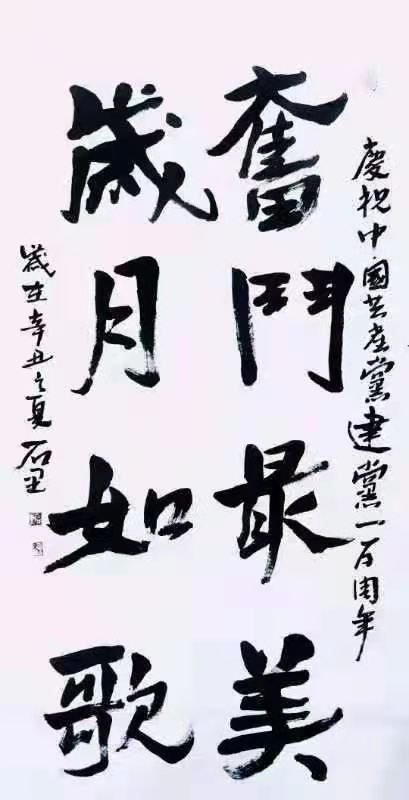 慶祝中國共產黨建黨一百周年
奮鬥最美
歲月如歌
歲在辛丑之夏 石里